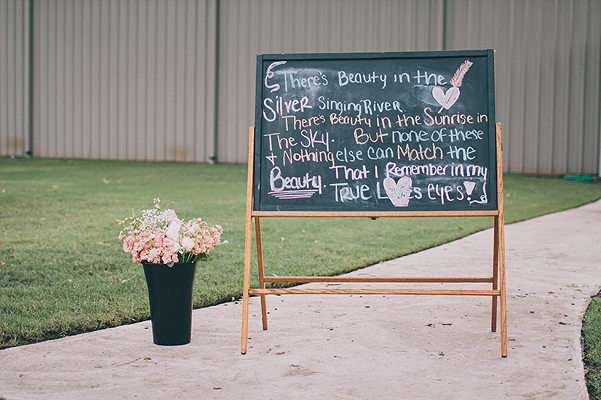 There's Beauty in the
Silver Singing River
There's Beauty in the Sunrise in
The Sky. But none of these
& Nothing else can Match the
Beauty That I Remember in my
True Love's eye's